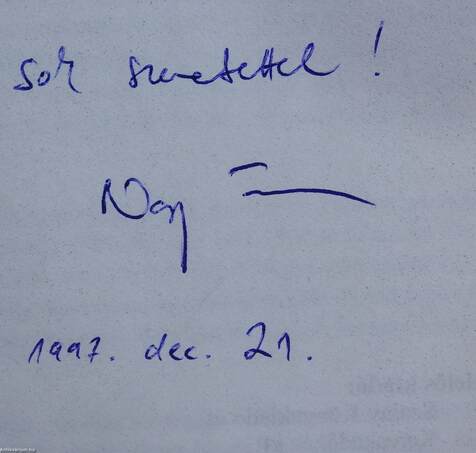 sok szeretettel!
Nagy
1997. dec. 21.